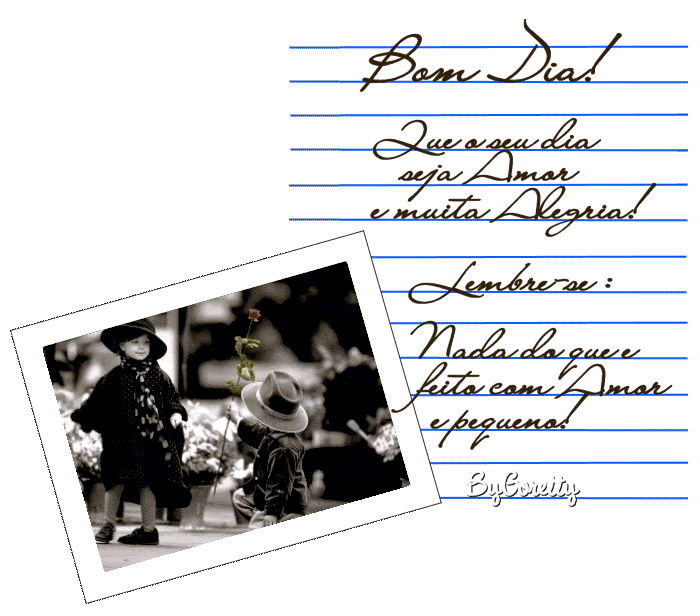 Bom Dia!
Que o seu dia
seja Amor
e muita Alegria!
Lembre-se :
Nada do que e
feito com Amor
e pequeno!
ByCoreity